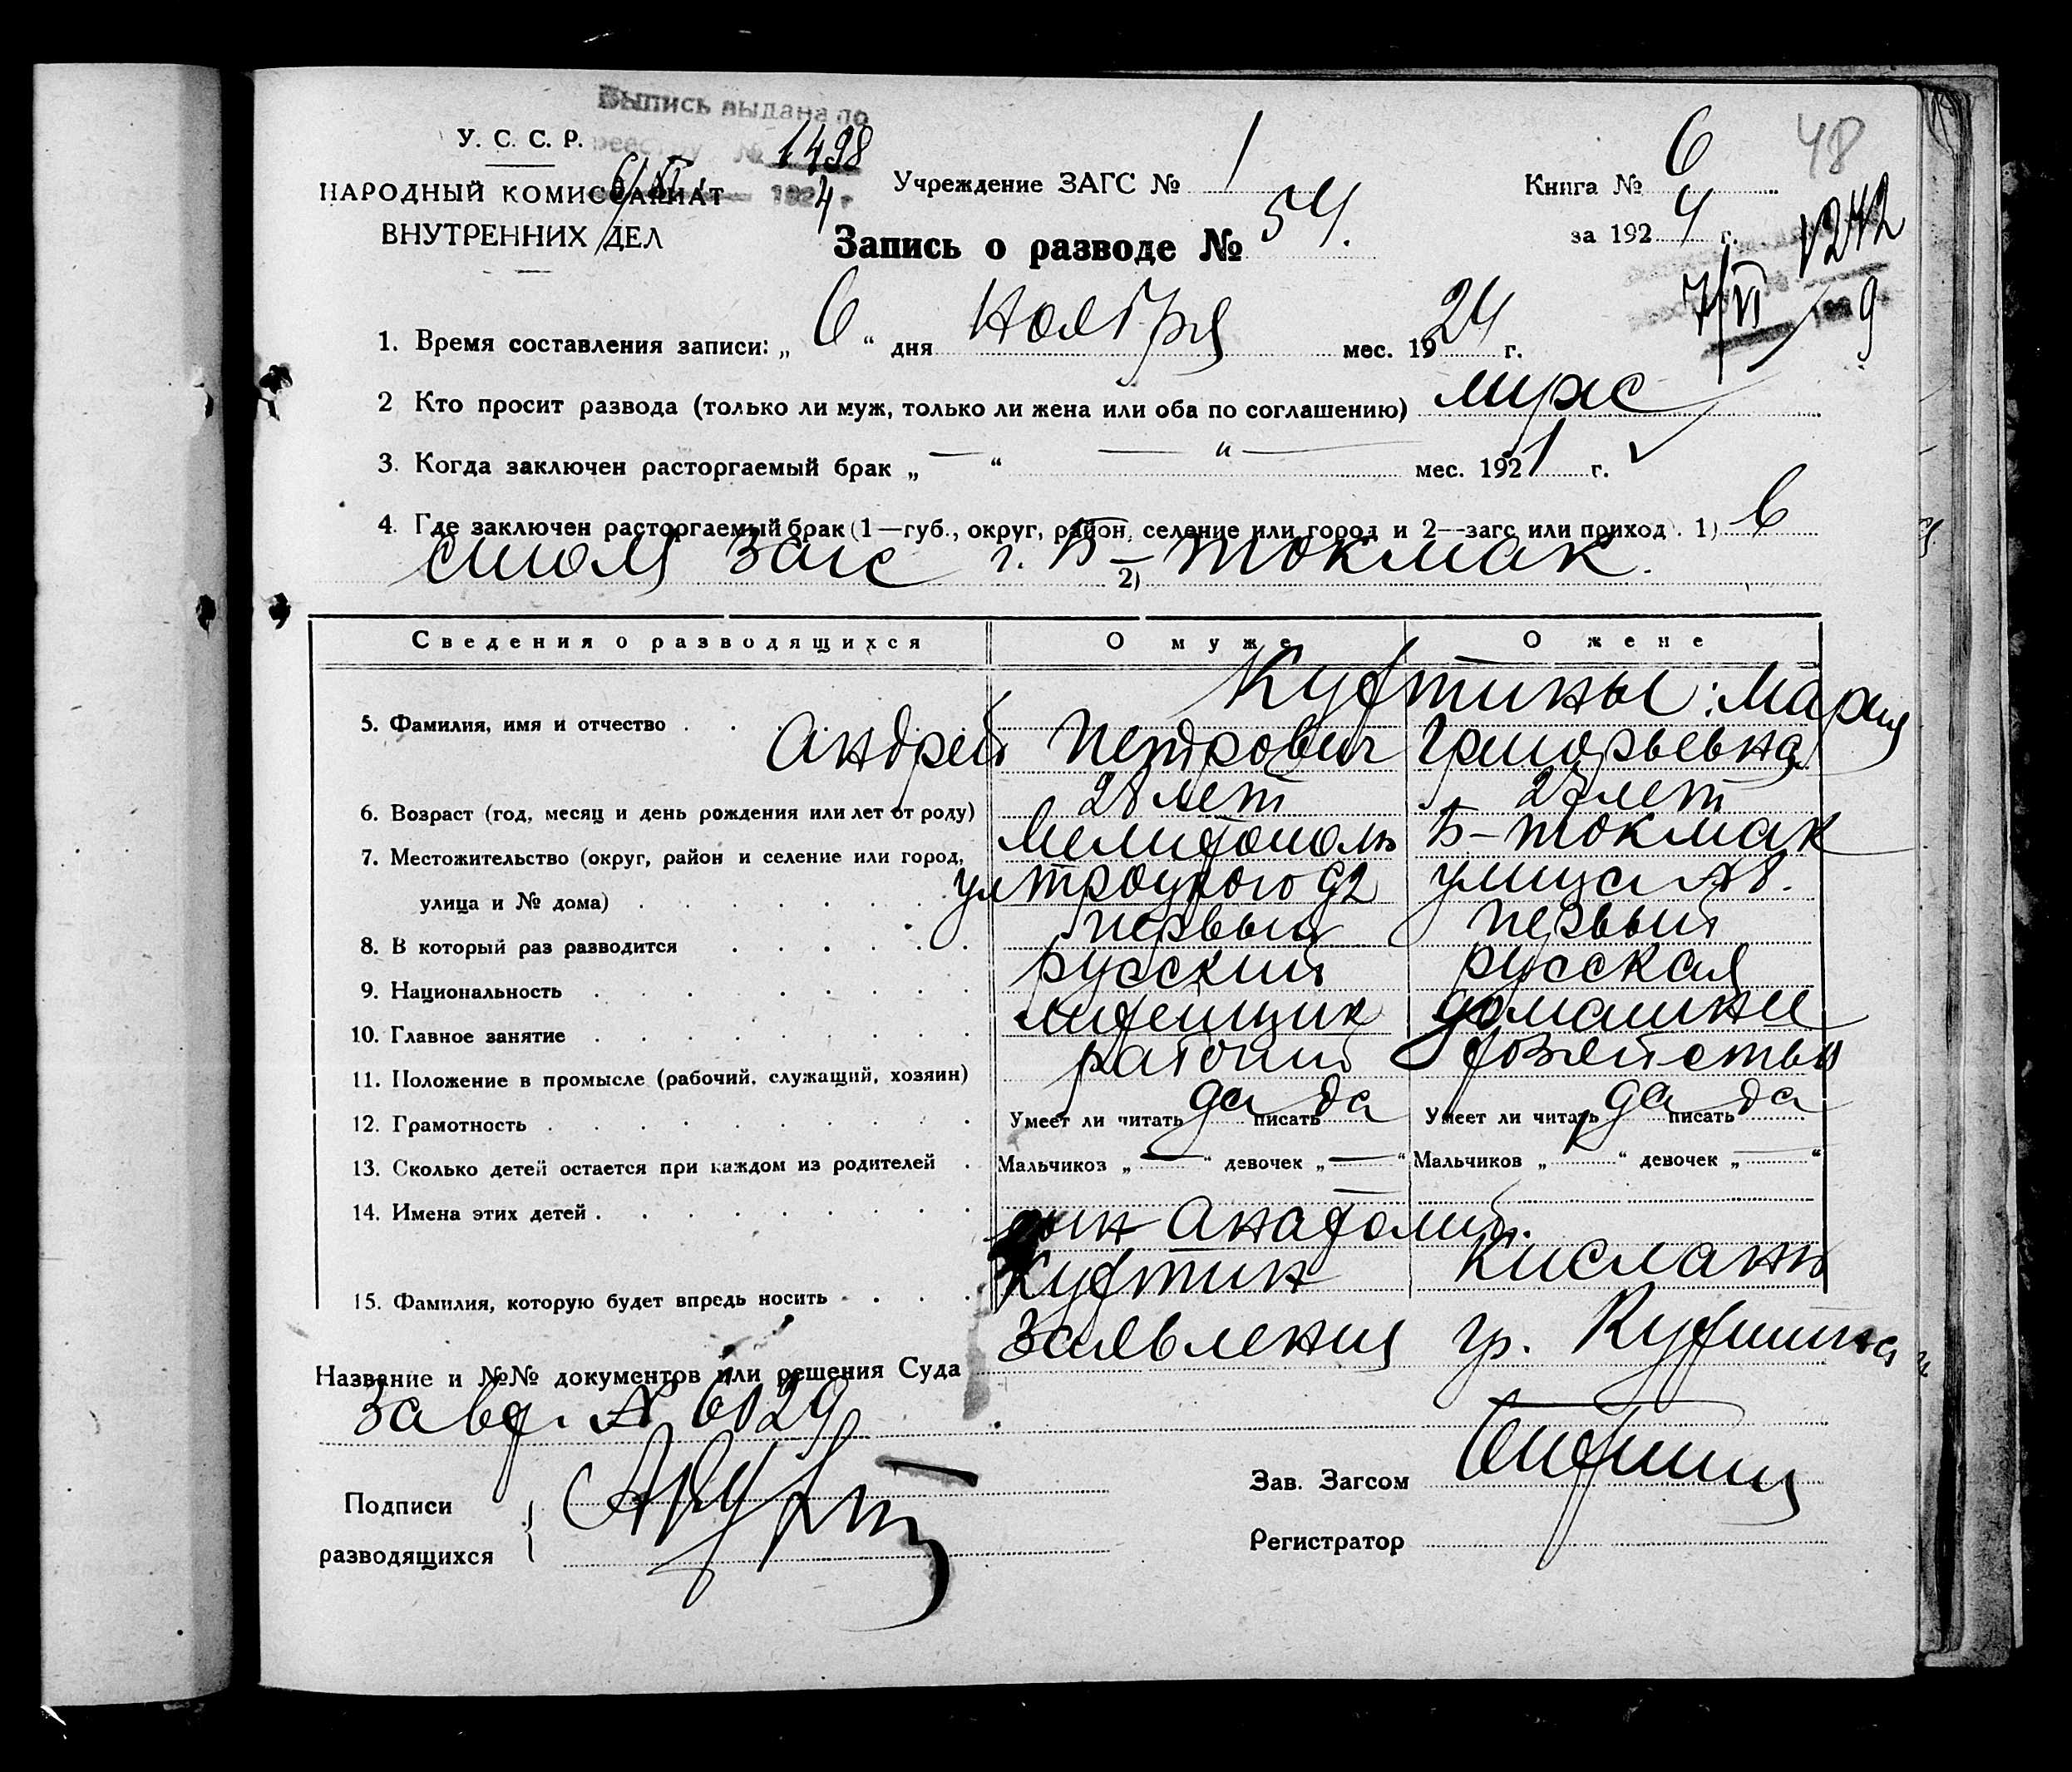 Выпись выдана по
реестру № 1498
6/XI 1924 г.
У. С. С. Р.
НАРОДНЫЙ КОМИССАРИАТ
ВНУТРЕННИХ ДЕЛ
Учреждение ЗАГС № 1
Книга № 6
48
за 1924 г.
1242
7/VI 1929
Запись о разводе № 54.
1. Время составления записи: „6“ дня Ноября мес. 1924 г.
2 Кто просит развода (только ли муж, только ли жена или оба по соглашению) муж
3. Когда заключен расторгаемый брак „—“ — " — мес. 1921 г.
4. Где заключен расторгаемый брак (1—губ., округ, район, селение или город и 2—загс или приход). 1) в
столе Загс г. Б-Токмак.
2)
Сведения о разводящихся О муже О жене
Куфтины: Мария
5. Фамилия, имя и отчество Андрей Петрович Григорьевна
6. Возраст (год, месяц и день рождения или лет от роду) 28 лет 27 лет
7. Местожительство (округ, район и селение или город, Мелитополь Б-Токмак
улица и № дома) ул Троцкого 92 улица № 8.
8. В который раз разводится первый первый
9. Национальность русский русская
10. Главное занятие домашнее
11. Положение в промысле (рабочий, служащий, хозяин) рабочий хозяйство
12. Грамотность Умеет ли читать да писать да Умеет ли читать да писать да
13. Сколько детей остается при каждом из родителей Мальчиков „—“ девочек „—“ Мальчиков „ “ девочек „—“
14. Имена этих детей
сын Анатолий.
15. Фамилия, которую будет впредь носить Куфтин Кислань
Название и №№ документов или решения Суда Заявления гр. Куфтина
за вд. № 6029
Подписи
разводящихся
Зав. Загсом
Регистратор